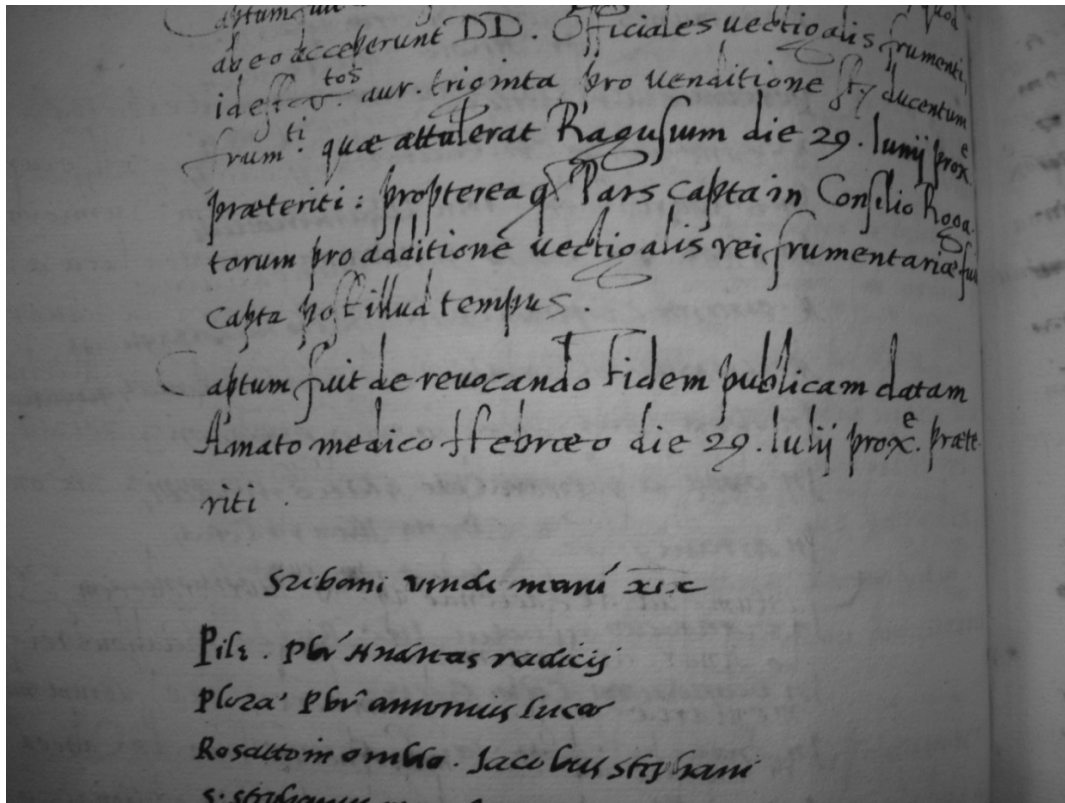 ab eo acceperunt DD. Officiales uectigalis frumenti
aur. triginta pro uenditione ducentum
frum.ti quæ attulerat Ragusium die 29. Iunij proxe.
præteriti: propterea q Pars capta in Consilio Roga
torum pro additione uectigalis rei frumentariæ fuit
capta post illud tempus.
Captum fuit de reuocando Fidem publicam datam
Amato medico Hebræo die 29. Iulij proxe. præte
riti.
radicij
antonius luca
Rosatto in ombla. Jacobus stephani